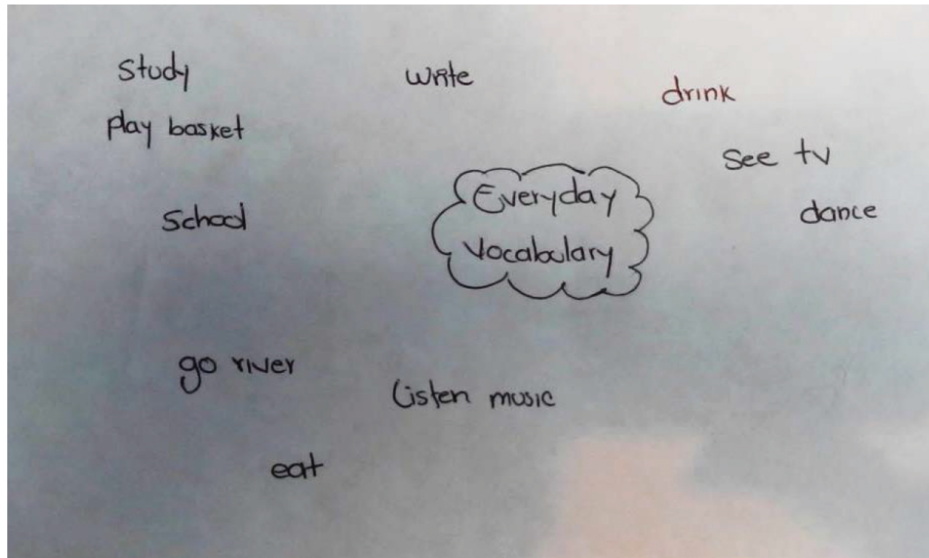 Study
write
drink
play basket
see tv
Everyday
Vocabulary
School
dance
go river
Listen music
eat